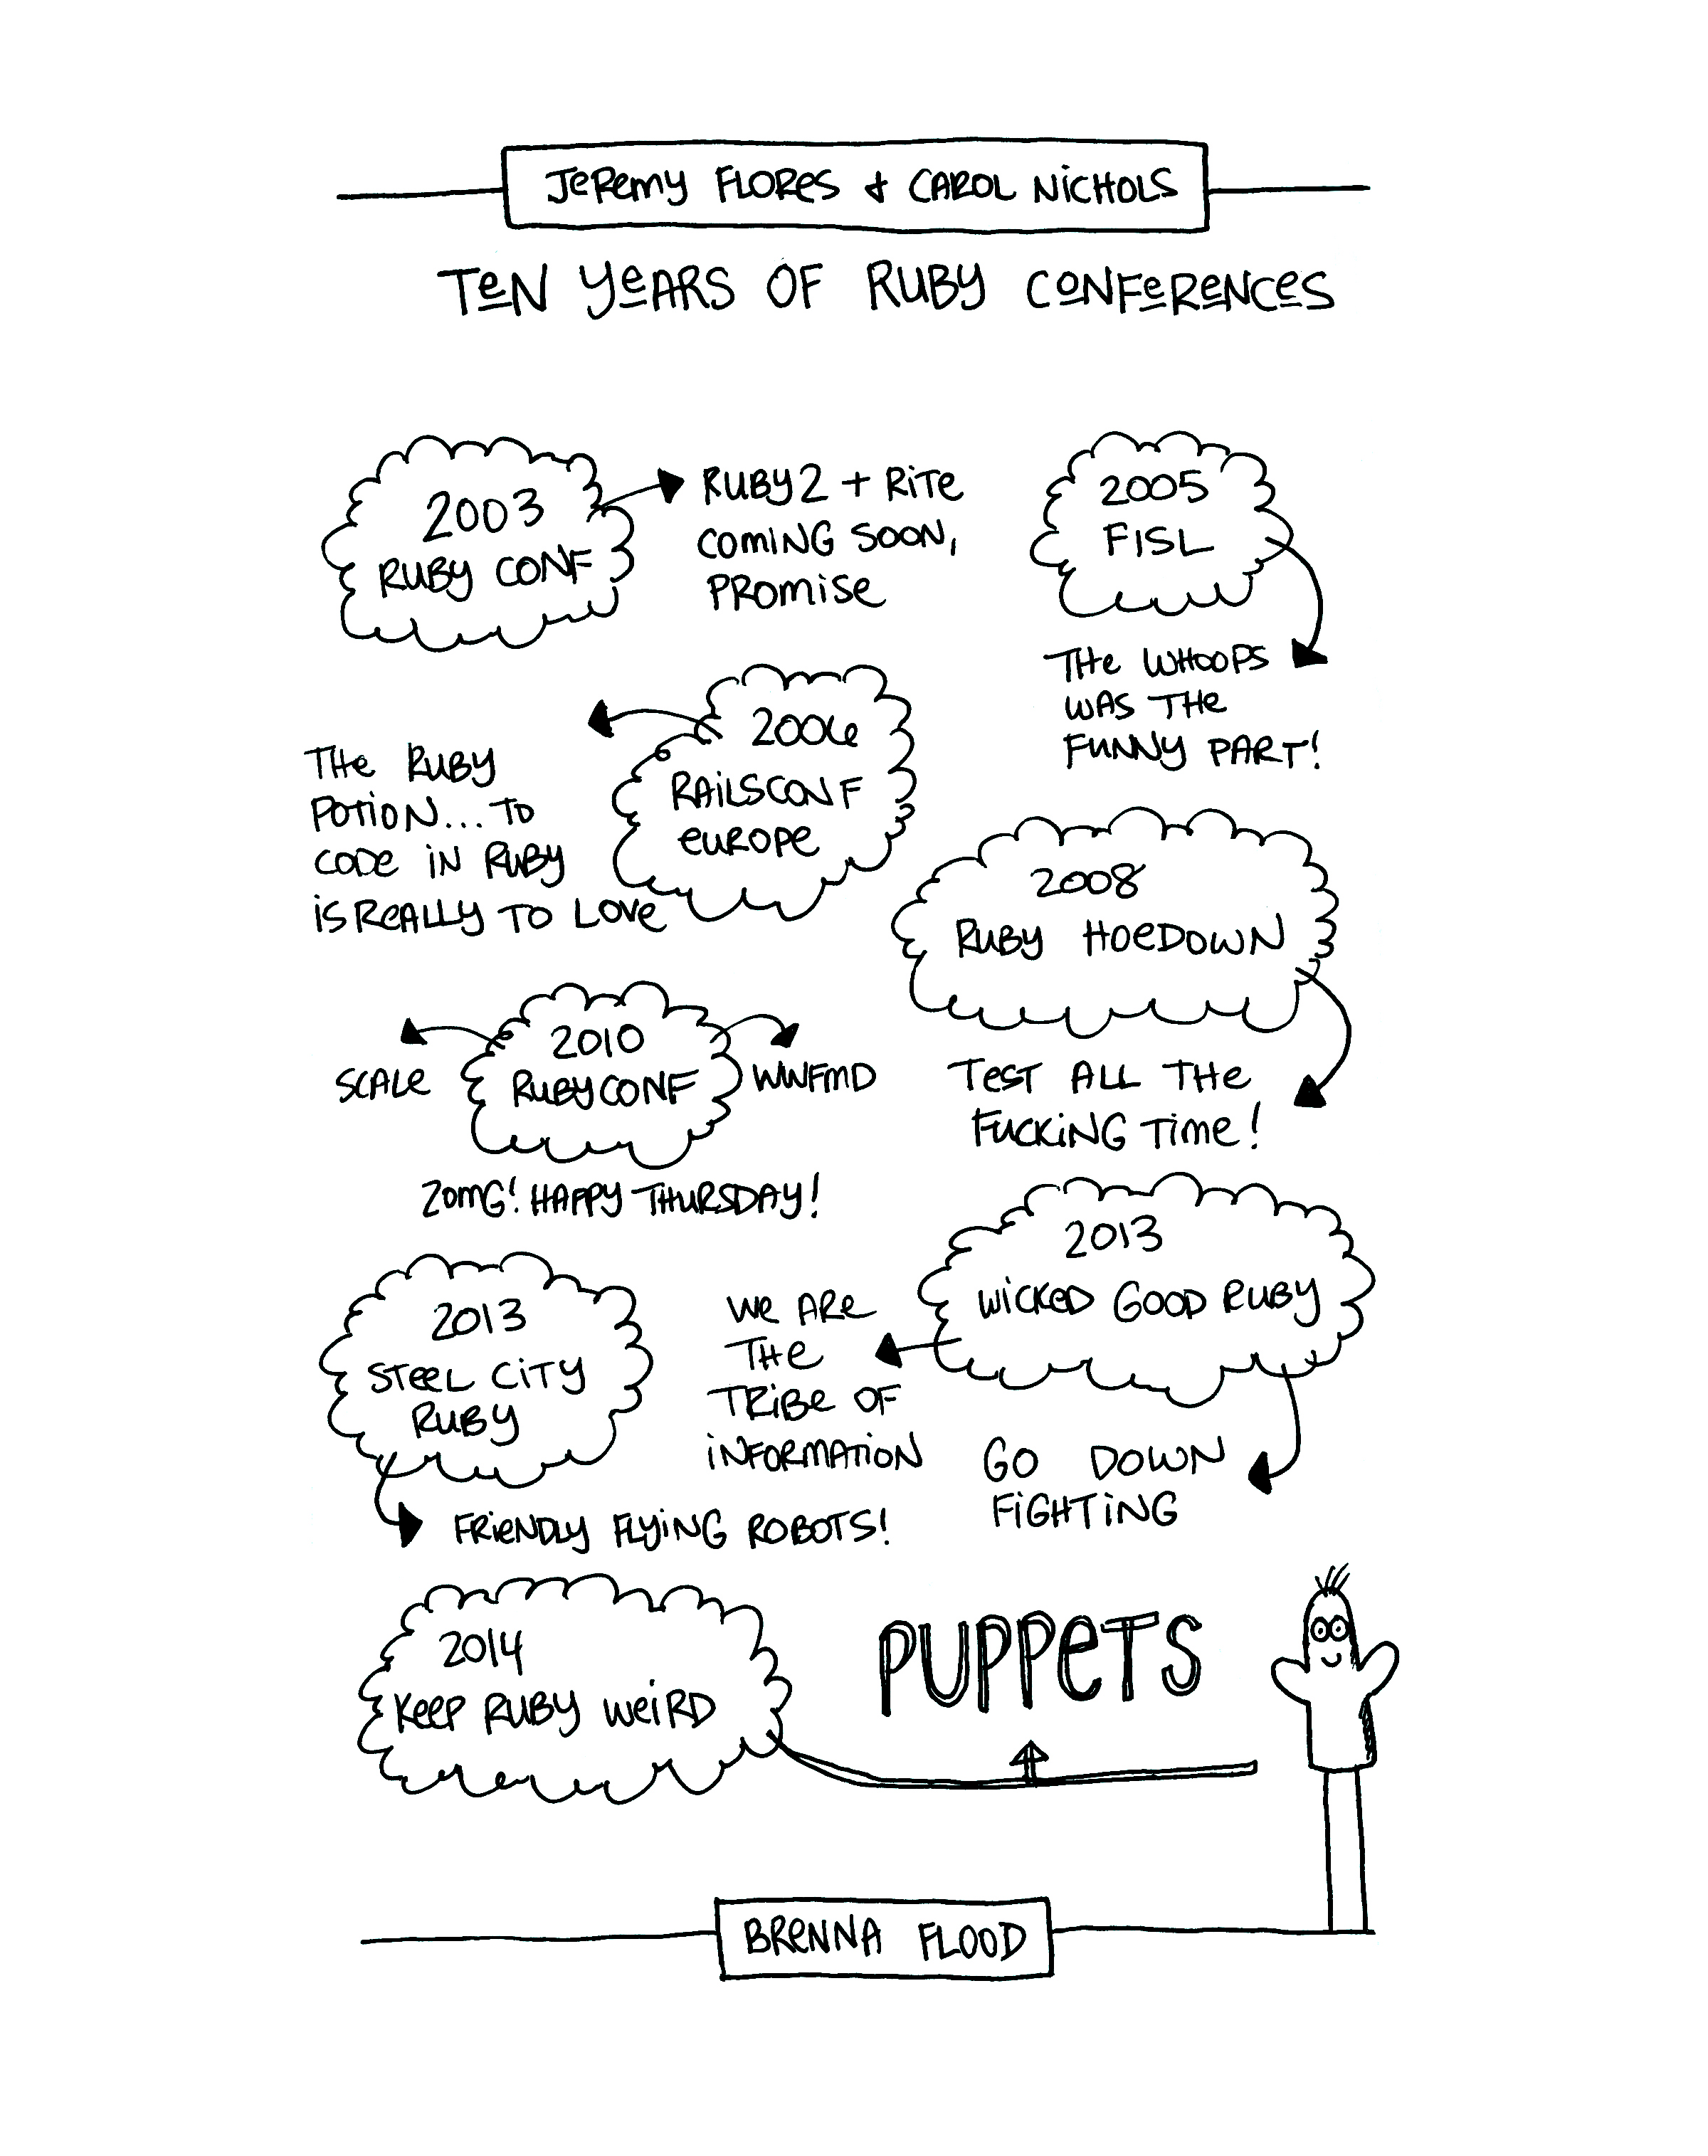 JeRemy FLORes & CAROL NiCHOLS
TeN YeARS OF RUBY CONFeReNCeS
2003
RUBY CONF
RUBY2 + RiTe
COMiNG SOON,
PROmise
2005
FISL
THe WHOOPS
WAS THe
FUNNY PART!
2006
RAiLSCONF
eUROPe
THe RUBY
POTiON... TO
CODe iN RUBY
iS ReALLY TO LOVe
2008
RUBY HOeDOWN
TeST ALL THe
FUCKiNG Time!
2010
RUBYCONF
SCALe
WWFMD
ZOMG! HAPPY THURSDAY!
2013
WiCKeD GOOD RUBY
We ARe
THe
TRiBe OF
iNFORMATiON
GO DOWN
FiGHTiNG
2013
STeeL CiTY
RUBY
FRieNDLY FLYiNG ROBOTS!
2014
KeeP RUBY WeiRD
PUPPeTS
BReNNA FLOOD